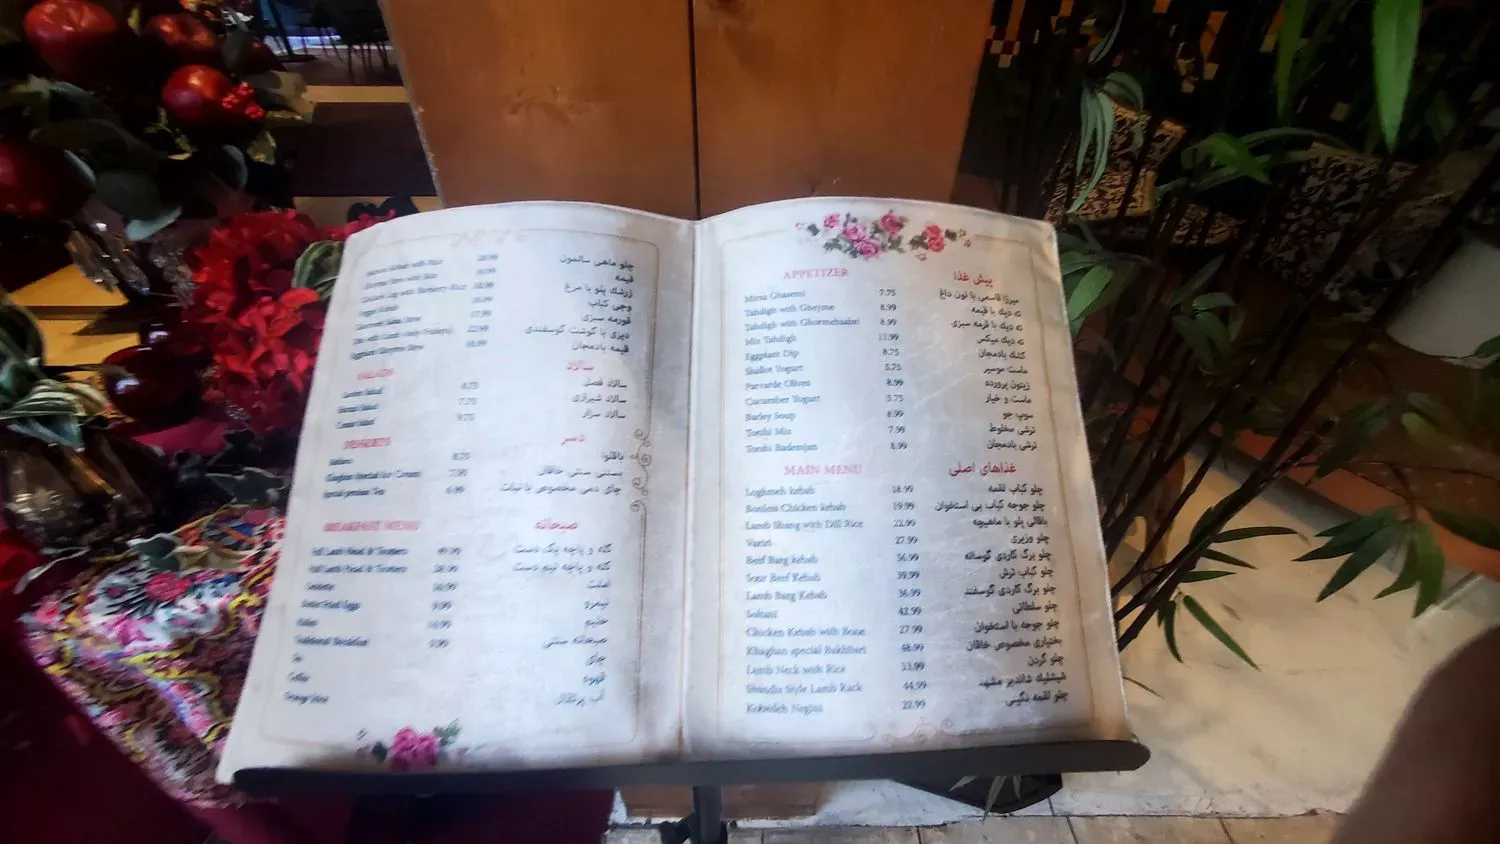 چلو ماهی سالمون
قیمه
زرشک پلو با مرغ
وجی کباب
قورمه سبزی
دیزی با گوشت گوسفندی
قیمه بادمجان
سالاد
سالاد فصل 6.75
سالاد شیرازی 7.75
سالاد سزار 9.75
DESSERTS دسر
باقلوا
Khaghan Special Ice Cream 7.99 بستنی سنتی خاقان
Special persian Tea 6.99 چای دمی مخصوص با نبات
BREAKFAST MENU صبحانه
Full Lamb Head & Trotters 49.99 کله و پاچه یک دست
Half Lamb Head & Trotters کله و پاچه نیم دست
Omelette املت
Fried Eggs 9.99 نیمرو
Halim حلیم
Traditional Breakfast 9.99 صبحانه سنتی
Tea چای
Coffee قهوه
Orange Juice آب پرتقال
APPETIZER پیش غذا
Mirza Ghasemi 7.75 میرزا قاسمی با نون داغ
Tahdigh with Gheyme 8.99 ته دیگ با قیمه
Tahdigh with Ghormehsabzi 8.99 ته دیگ با قرمه سبزی
Mix Tahdigh 11.99 ته دیگ میکس
Eggplant Dip 8.75 کشک بادمجان
Shallot Yogurt 5.75 ماست موسیر
Parvarde Olives 8.99 زیتون پرورده
Cucumber Yogurt 5.75 ماست و خیار
Barley Soup 8.99 سوپ جو
Torshi Mix 7.99 ترشی مخلوط
Torshi Bademjan 8.99 ترشی بادمجان
MAIN MENU غذاهای اصلی
Loghmeh kebab 18.99 چلو کباب لقمه
Bonless Chicken kebab 19.99 چلو جوجه کباب بی استخوان
Lamb Shang with Dill Rice 22.99 باقالی پلو با ماهیچه
Vaziri 27.99 چلو وزیری
Beef Barg kebab 36.99 چلو برگ کاردی گوساله
Sour Beef Kebab 39.99 چلو کباب ترش
Lamb Barg Kebab 36.99 چلو برگ کاردی گوسفند
Soltani 42.99 چلو سلطانی
Chicken Kebab with Bone 27.99 چلو جوجه با استخوان
Khaghan special Bakhtiari 48.99 بختیاری مخصوص خاقان
Lamb Neck with Rice چلو گردن
Shandiz Style Lamb Rack 44.99 شیشلیک شاندیز مشهد
Kobeideh Negini 22.99 چلو لقمه نگینی